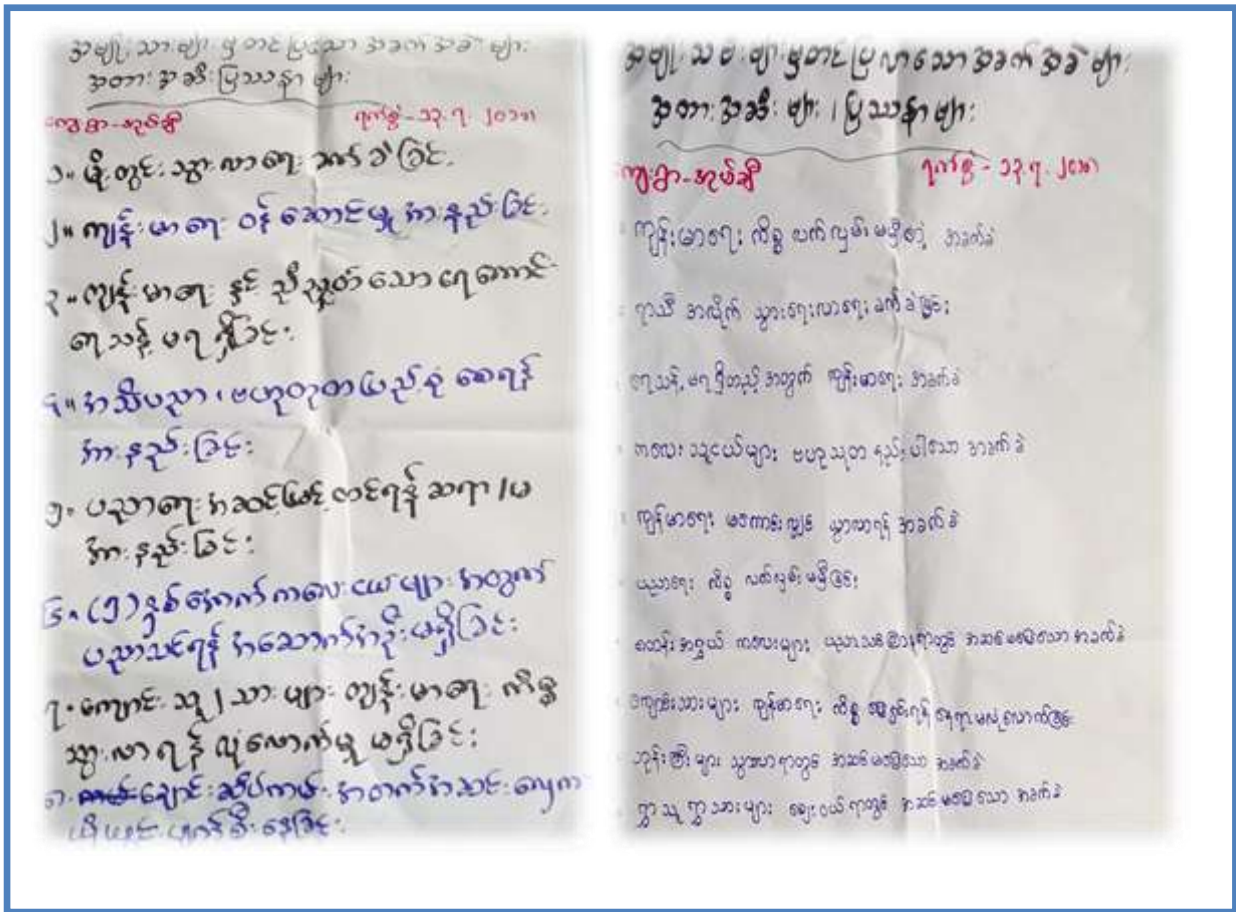 အမျိုးသားများမှတင်ပြသော အခက်အခဲများ
အတားအဆီး ပြဿနာများ
ကျေးရွာ-အုပ်ချီ ရက်စွဲ - ၁၃.၇.၂၀၁၈
၁။ မိုးတွင်း သွားလာရေး ခက်ခဲခြင်း
၂။ ကျန်းမာရေး ဝန်ဆောင်မှု အားနည်းခြင်း
၃။ ကျန်းမာရေး နှင့် ညီညွတ်သော ရေကောင်း
ရေသန့် မရရှိခြင်း
၄။ အသိပညာ၊ ဗဟုသုတ ပြည့်စုံစေရန်
အားနည်းခြင်း
၅။ ပညာရေး အဆင့်မြှင့်တင်ရန် ဆရာ/မ
အားနည်းခြင်း
၆။ (၅)နှစ်အောက် ကလေးငယ်များ အတွက်
ပညာသင်ရန် အဆောက်အဦး မရှိခြင်း
၇။ ကျောင်းသူ/သားများ ကျန်းမာရေး ကိစ္စ
သွားလာရန် လုံလောက်မှု မရှိခြင်း
၈။ ချောင်းဆိပ်ကမ်း အတက်အဆင်း လှေကား
ယိုယွင်းပျက်စီးနေခြင်း
အမျိုးသမီးများမှတင်ပြလာသော အခက်အခဲများ
အတားအဆီးများ၊ ပြဿနာများ
ကျေးရွာ-အုပ်ချီ ရက်စွဲ - ၁၃.၇.၂၀၁၈
ကျန်းမာရေး ကိစ္စ လက်လှမ်းမမှီတဲ့ အခက်ခဲ
ရာသီ အလိုက် သွားရေးလာရေး ခက်ခဲခြင်း
ရေသန့် မရရှိတည့်အတွက် ကျန်းမာရေး အခက်ခဲ
ကလေးသူငယ်များ ဗဟုသုတ နည်းပါးသော အခက်ခဲ
ကျန်မာရေး မကောင်းလျှင် သွာလာရန် အခက်ခဲ
ပညာရေး ကိစ္စ လက်လှမ်းမမှီခြင်း
စတန်းအရွယ် ကလေးများ ပညာသင်ကြားရာတွင် အဆင်မပြေသော အခက်ခဲ
ကျောင်းသားများ ကျန်မာရေး ကိစ္စ ဆောင်ရွက်ရန် နေရာ မလုံလောက်ခြင်း
ဘုန်းကြီးများ သွားလာရာတွင် အဆင်မပြေသော အခက်ခဲ
ရွာသူရွာသားများ ဈေးဝယ်ရာတွင် အဆင်မပြေသော အခက်ခဲ